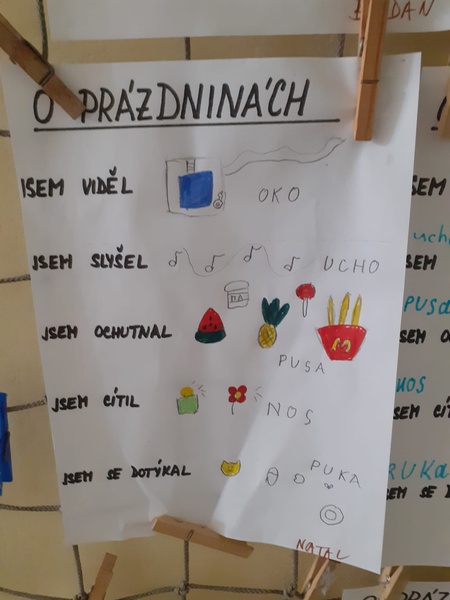 DAN
O PRÁZDNINÁCH
JSEM VIDĚL
OKO
JSEM SLYŠEL
UCHO
JSEM OCHUTNAL
PUSA
JSEM CÍTIL
NOS
JSEM SE DOTÝKAL
PUKA
NATAL
SEM
ucho
SEM
PUSA
SEM O
NOS
SEM CÍT
RUKA
SEM SE D
O PRÁZ